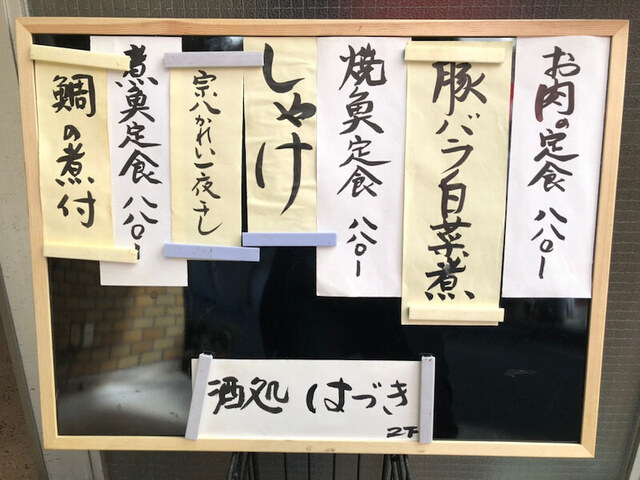 お肉の定食 八八〇ー
豚バラ白菜煮
焼魚定食 八八〇ー
しゃけ
宗八かれい一夜干し
煮魚定食 八八〇ー
鯛の煮付
酒処 はづき
2F